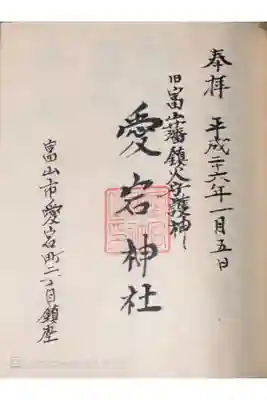 奉拝 平成二十六年一月五日
旧富山藩鎮火守護神
愛宕神社
富山市愛宕町二丁目鎮座